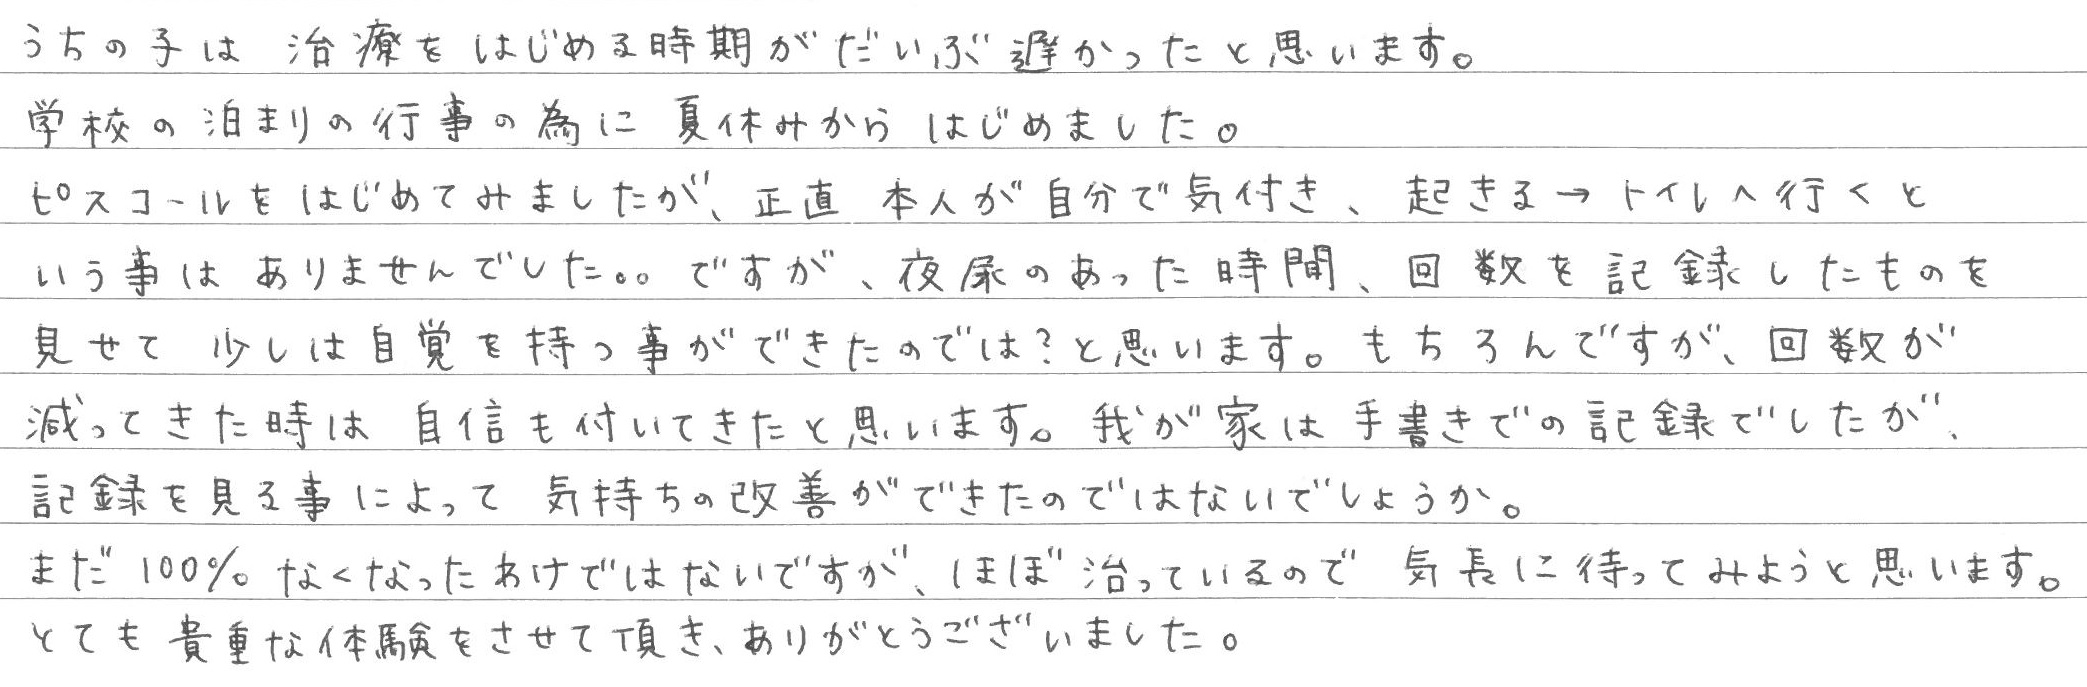 うちの子は 治療をはじめる時期がだいぶ遅かったと思います。
学校の泊まりの行事の為に 夏休みからはじめました。
ピスコールをはじめてみましたが、正直 本人が自分で気付き、起きる→トイレへ行くと
いう事は ありませんでした。。ですが、夜尿のあった時間、回数を記録したものを
見せて 少しは自覚を持つ事ができたのでは?と思います。もちろんですが、回数が
減ってきた時は 自信も付いてきたと思います。我が家は手書きでの記録でしたが、
記録を見る事によって 気持ちの改善ができたのではないでしょうか。
まだ100%なくなったわけではないですが、ほぼ治っているので 気長に待ってみようと思います。
とても貴重な体験をさせて頂き、ありがとうございました。